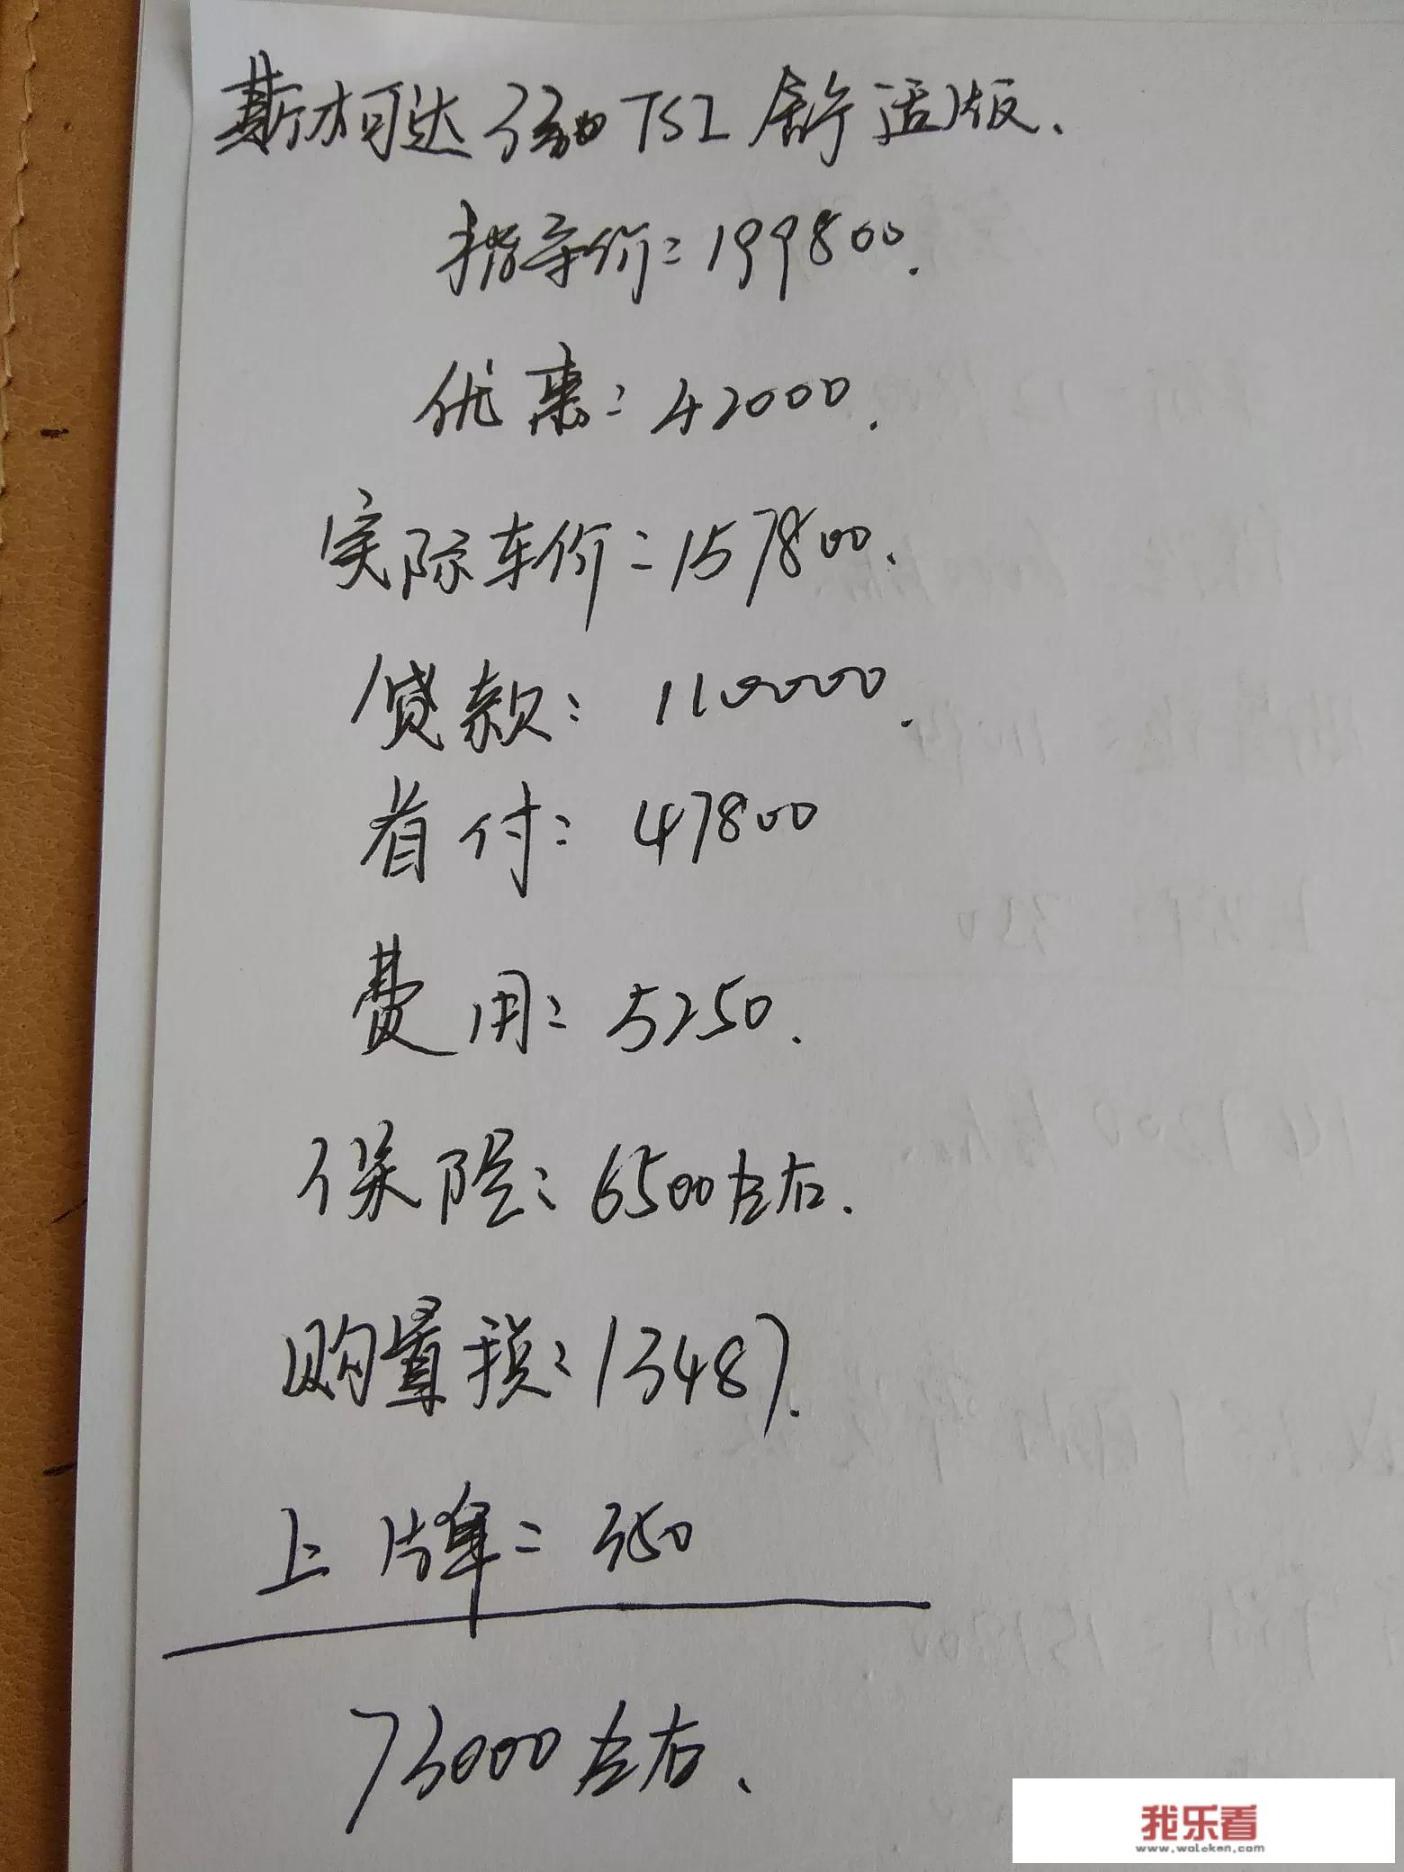 斯柯达 TSI 舒适版.
指导价: 199800.
优惠: 42000.
实际车价: 157800.
贷款: 110000.
首付: 47800
费用: 5250.
保险: 6500左右.
购置税: 13487.
上牌: 350
73000左右.
我乐看
www.woleken.com